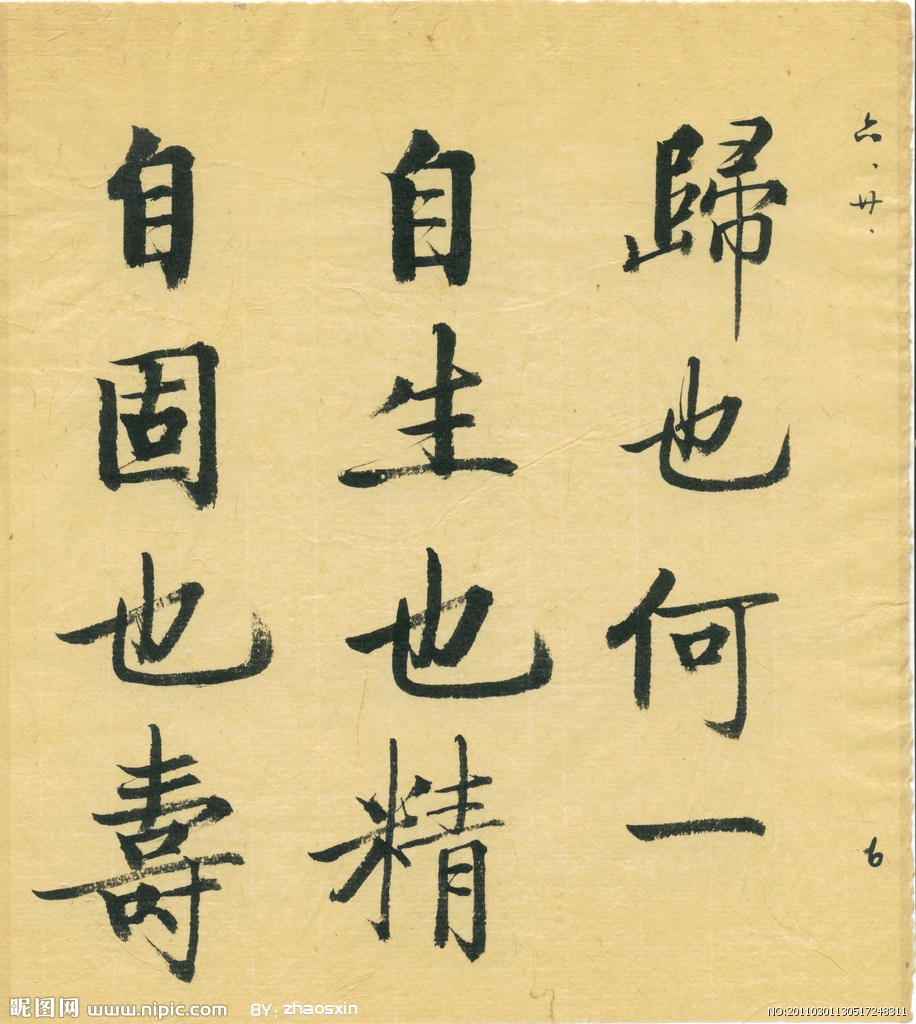 六、廿、
歸也何一
自生也精
自固也壽
6
昵图网 www.nipic.com BY:zhaosxin
NO:20110301130517248311